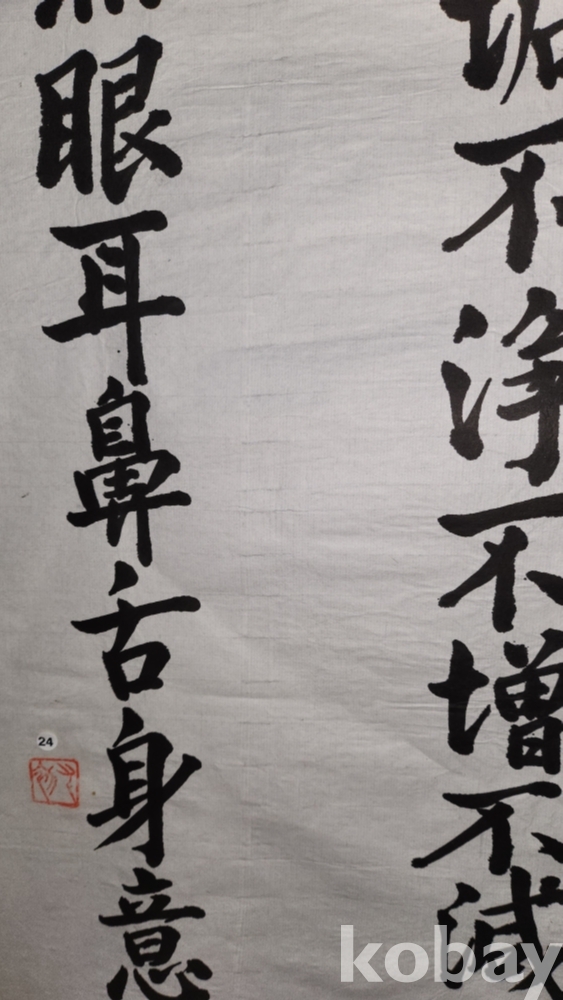 垢不浄不増不減
無眼耳鼻舌身意
24
kobay